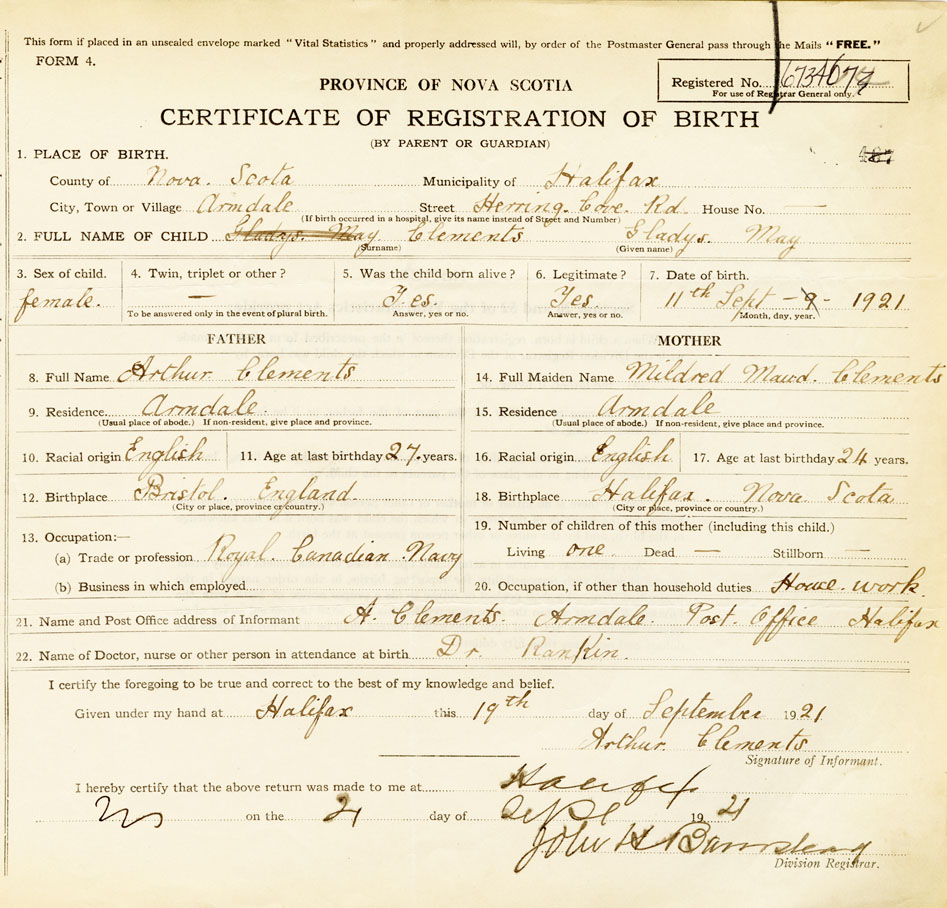 This form if placed in an unsealed envelope marked "Vital Statistics" and properly addressed will, by order of the Postmaster General pass through the Mails "FREE."
FORM 4.
PROVINCE OF NOVA SCOTIA
Registered No.
For use of Registrar General only.
CERTIFICATE OF REGISTRATION OF BIRTH
(BY PARENT OR GUARDIAN)
1. PLACE OF BIRTH.
County of Nova. Scota Municipality of Halifax
City, Town or Village Armdale Street Herring. Cove. Rd. House No. —
(If birth occurred in a hospital, give its name instead of Street and Number)
2. FULL NAME OF CHILD Gladys. May Clements Gladys. May
(Surname) (Given name)
3. Sex of child. 4. Twin, triplet or other ? 5. Was the child born alive ? 6. Legitimate ? 7. Date of birth.
female. — Yes. Yes. 11th Sept - 9 - 1921
To be answered only in the event of plural birth. Answer, yes or no. Answer, yes or no. Month, day, year.
FATHER MOTHER
8. Full Name Arthur Clements 14. Full Maiden Name Mildred Maud. Clements
9. Residence Armdale. 15. Residence Armdale
(Usual place of abode.) If non-resident, give place and province. (Usual place of abode.) If non-resident, give place and province.
10. Racial origin English 11. Age at last birthday 27. years. 16. Racial origin English 17. Age at last birthday 24 years.
12. Birthplace Bristol. England. 18. Birthplace Halifax. Nova Scota
(City or place, province or country.) (City or place, province or country.)
13. Occupation:— 19. Number of children of this mother (including this child.)
(a) Trade or profession Royal. Canadian. Navy Living one. Dead — Stillborn —
(b) Business in which employed 20. Occupation, if other than household duties House. work.
21. Name and Post Office address of Informant A. Clements. Armdale. Post. Office Halifax
22. Name of Doctor, nurse or other person in attendance at birth Dr. Rankin.
I certify the foregoing to be true and correct to the best of my knowledge and belief.
Given under my hand at Halifax this 19th day of September 1921
Arthur Clements
Signature of Informant.
I hereby certify that the above return was made to me at Halifax
on the 21 day of Sept 1921
John H Barnstead
Division Registrar.